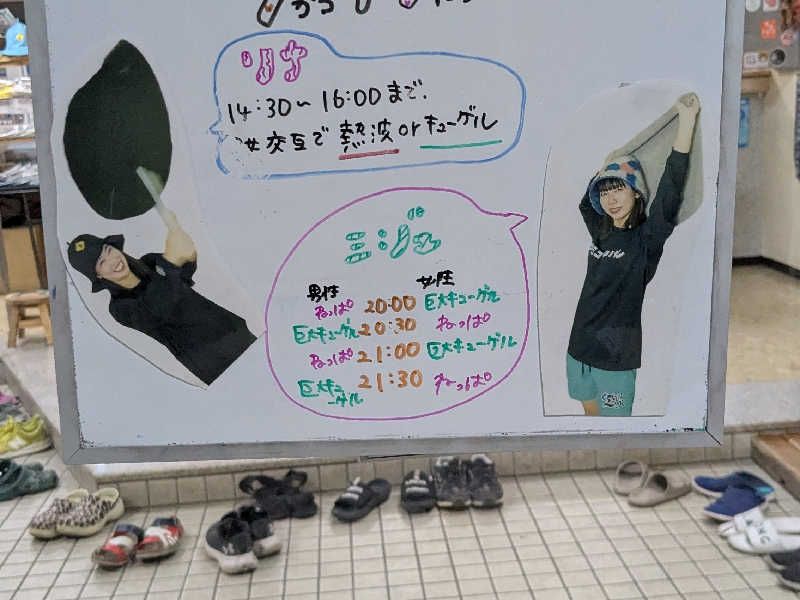 リナ
14:30〜16:00まで.
交互で熱波orキューゲル
ミジュ
男性 女性
ねっぱ 20:00 巨大キューゲル
巨大キューゲル 20:30 ねっぱ
ねっぱ 21:00 巨大キューゲル
巨大キュ 21:30 ねっぱ
ーゲル